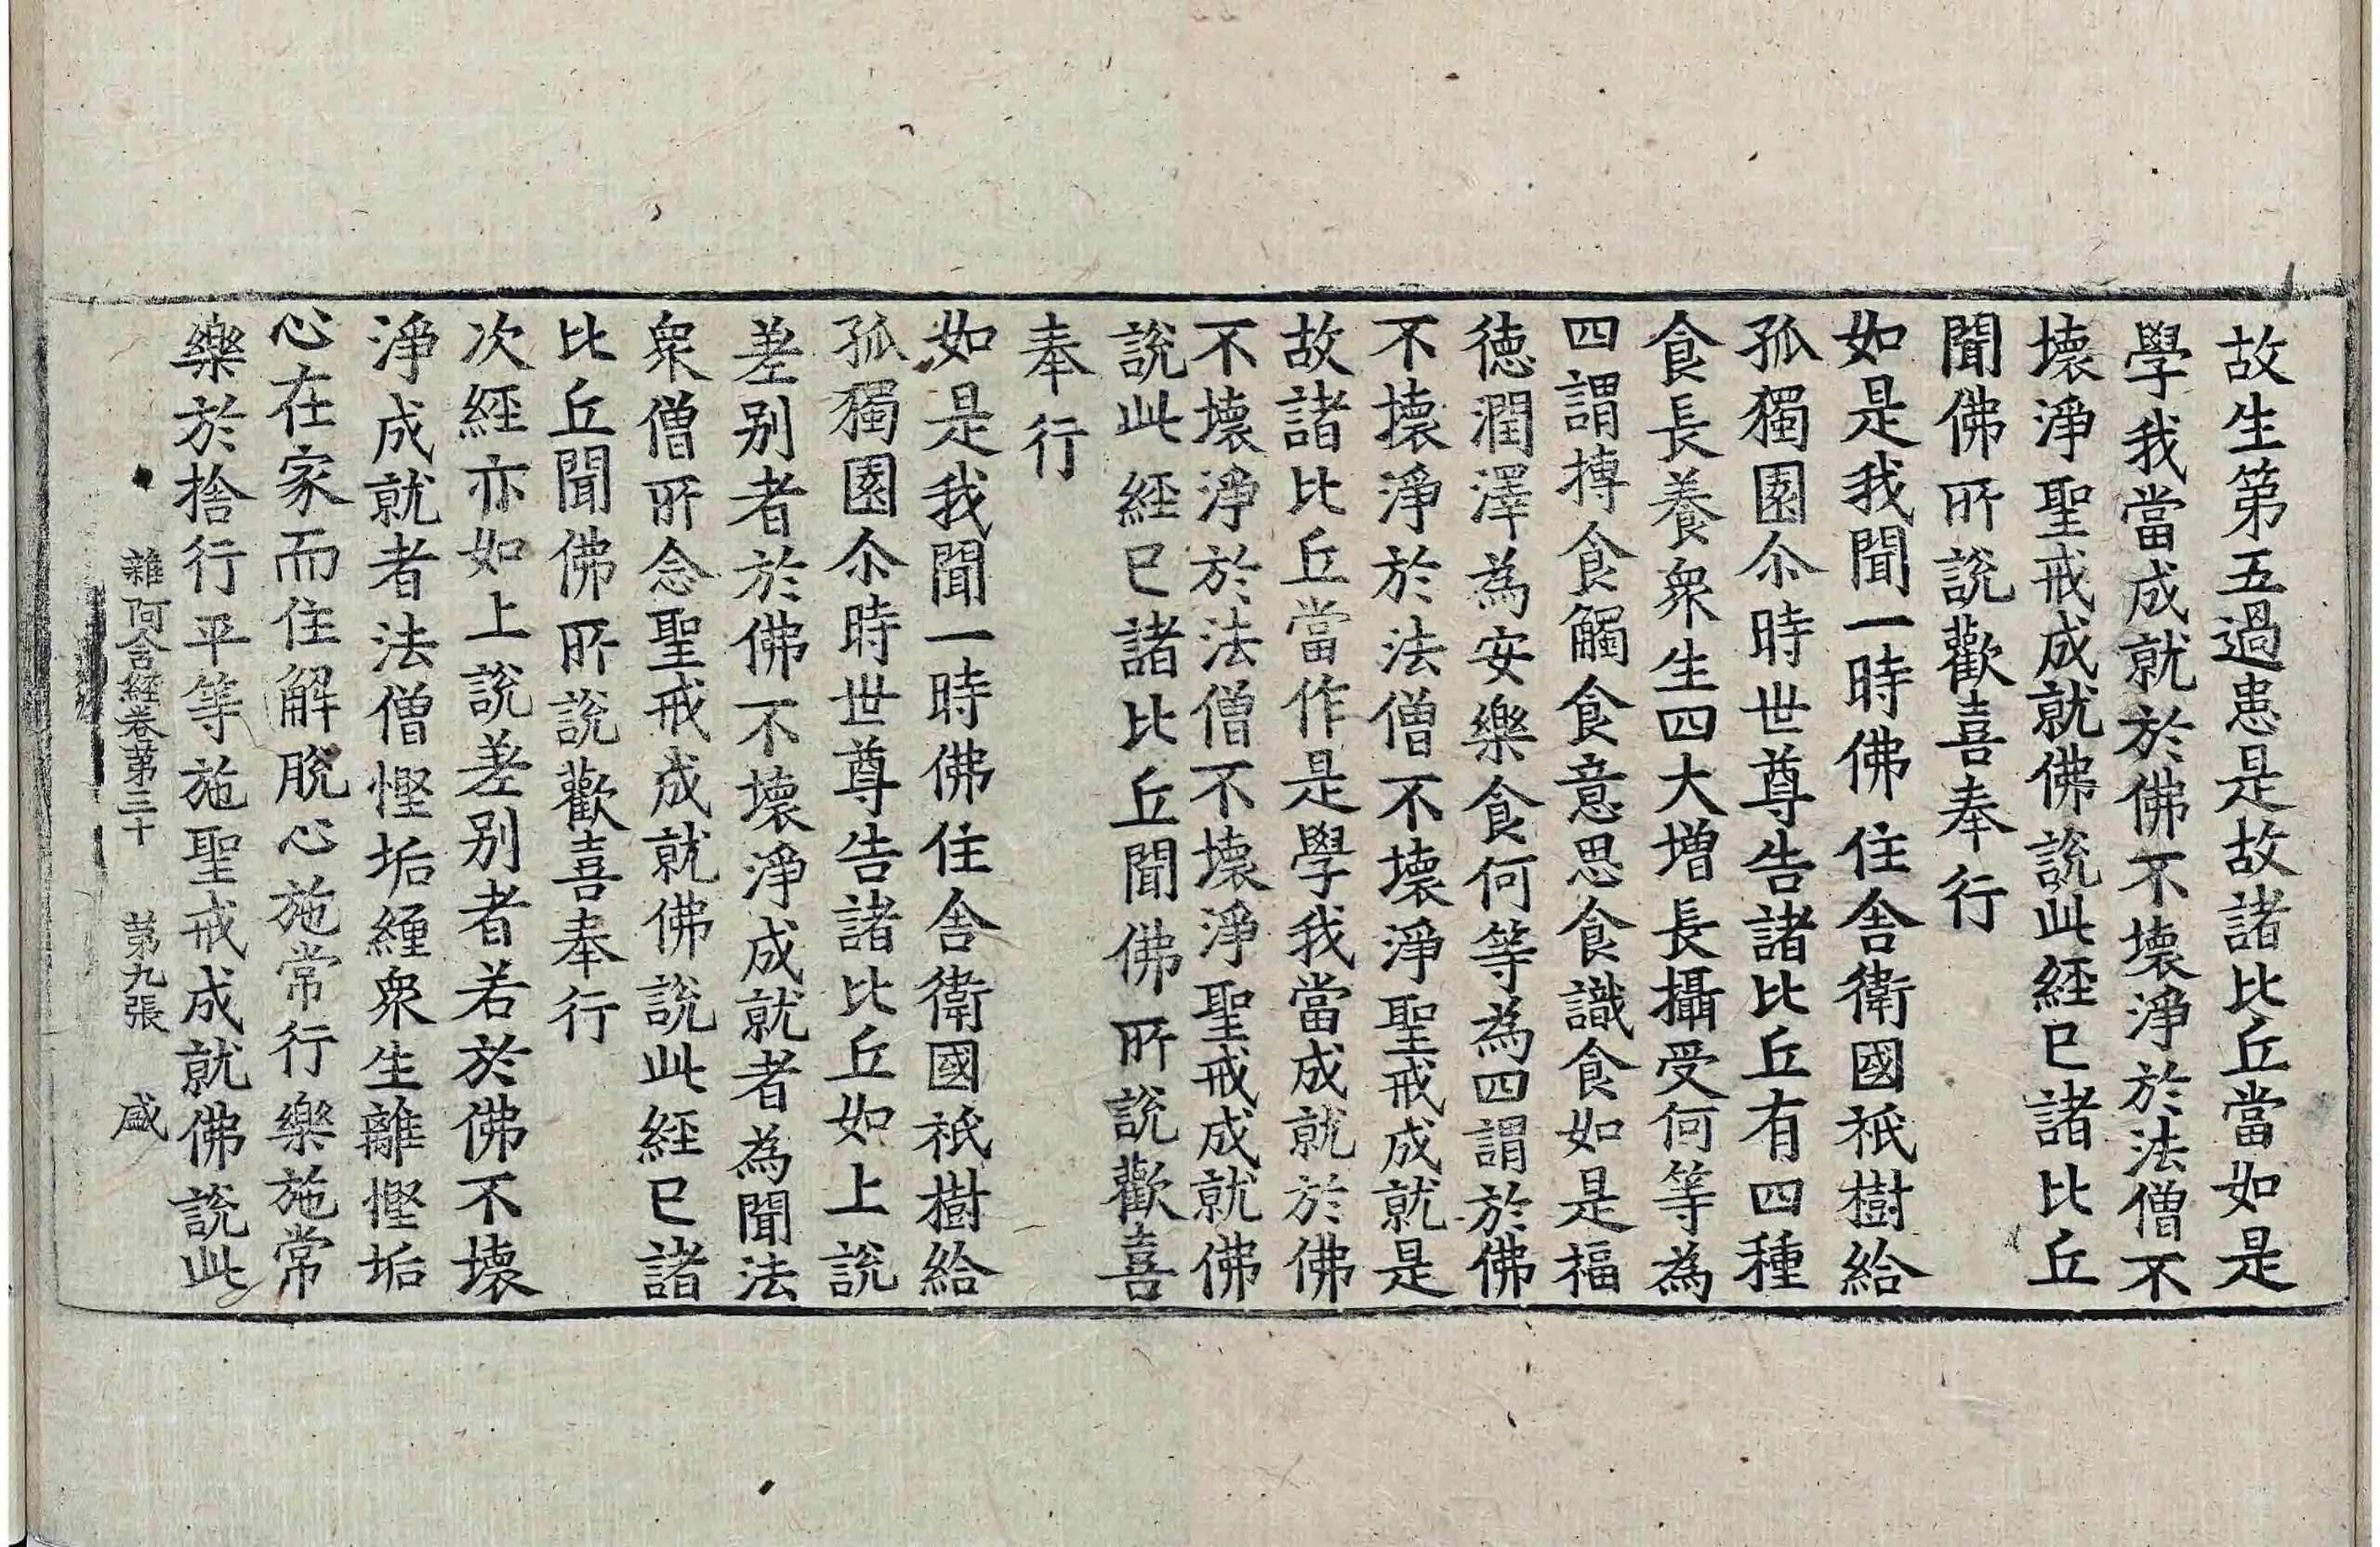 故生第五過患是故諸比丘當如是
學我當成就於佛不壞淨於法僧不
壞淨聖戒成就佛說此経已諸比丘
聞佛所說歡喜奉行
如是我聞一時佛住舎衛國祇樹給
孤獨園尒時世尊告諸比丘有四種
食長養衆生四大增長攝受何等為
四謂摶食觸食意思食識食如是福
徳潤澤為安樂食何等為四謂於佛
不壞淨於法僧不壞淨聖戒成就是
故諸比丘當作是學我當成就於佛
不壞淨於法僧不壞淨聖戒成就佛
說此経已諸比丘聞佛所說歡喜
奉行
如是我聞一時佛住舎衛國祇樹給
孤獨園尒時世尊告諸比丘如上說
差別者於佛不壞淨成就者為聞法
衆僧所念聖戒成就佛說此経已諸
比丘聞佛所說歡喜奉行
次経亦如上說差別者若於佛不壞
淨成就者法僧慳垢纏衆生離慳垢
心在家而住解脫心施常行樂施常
樂於捨行平等施聖戒成就佛說此
雜阿含経卷第三十 第九張 盛